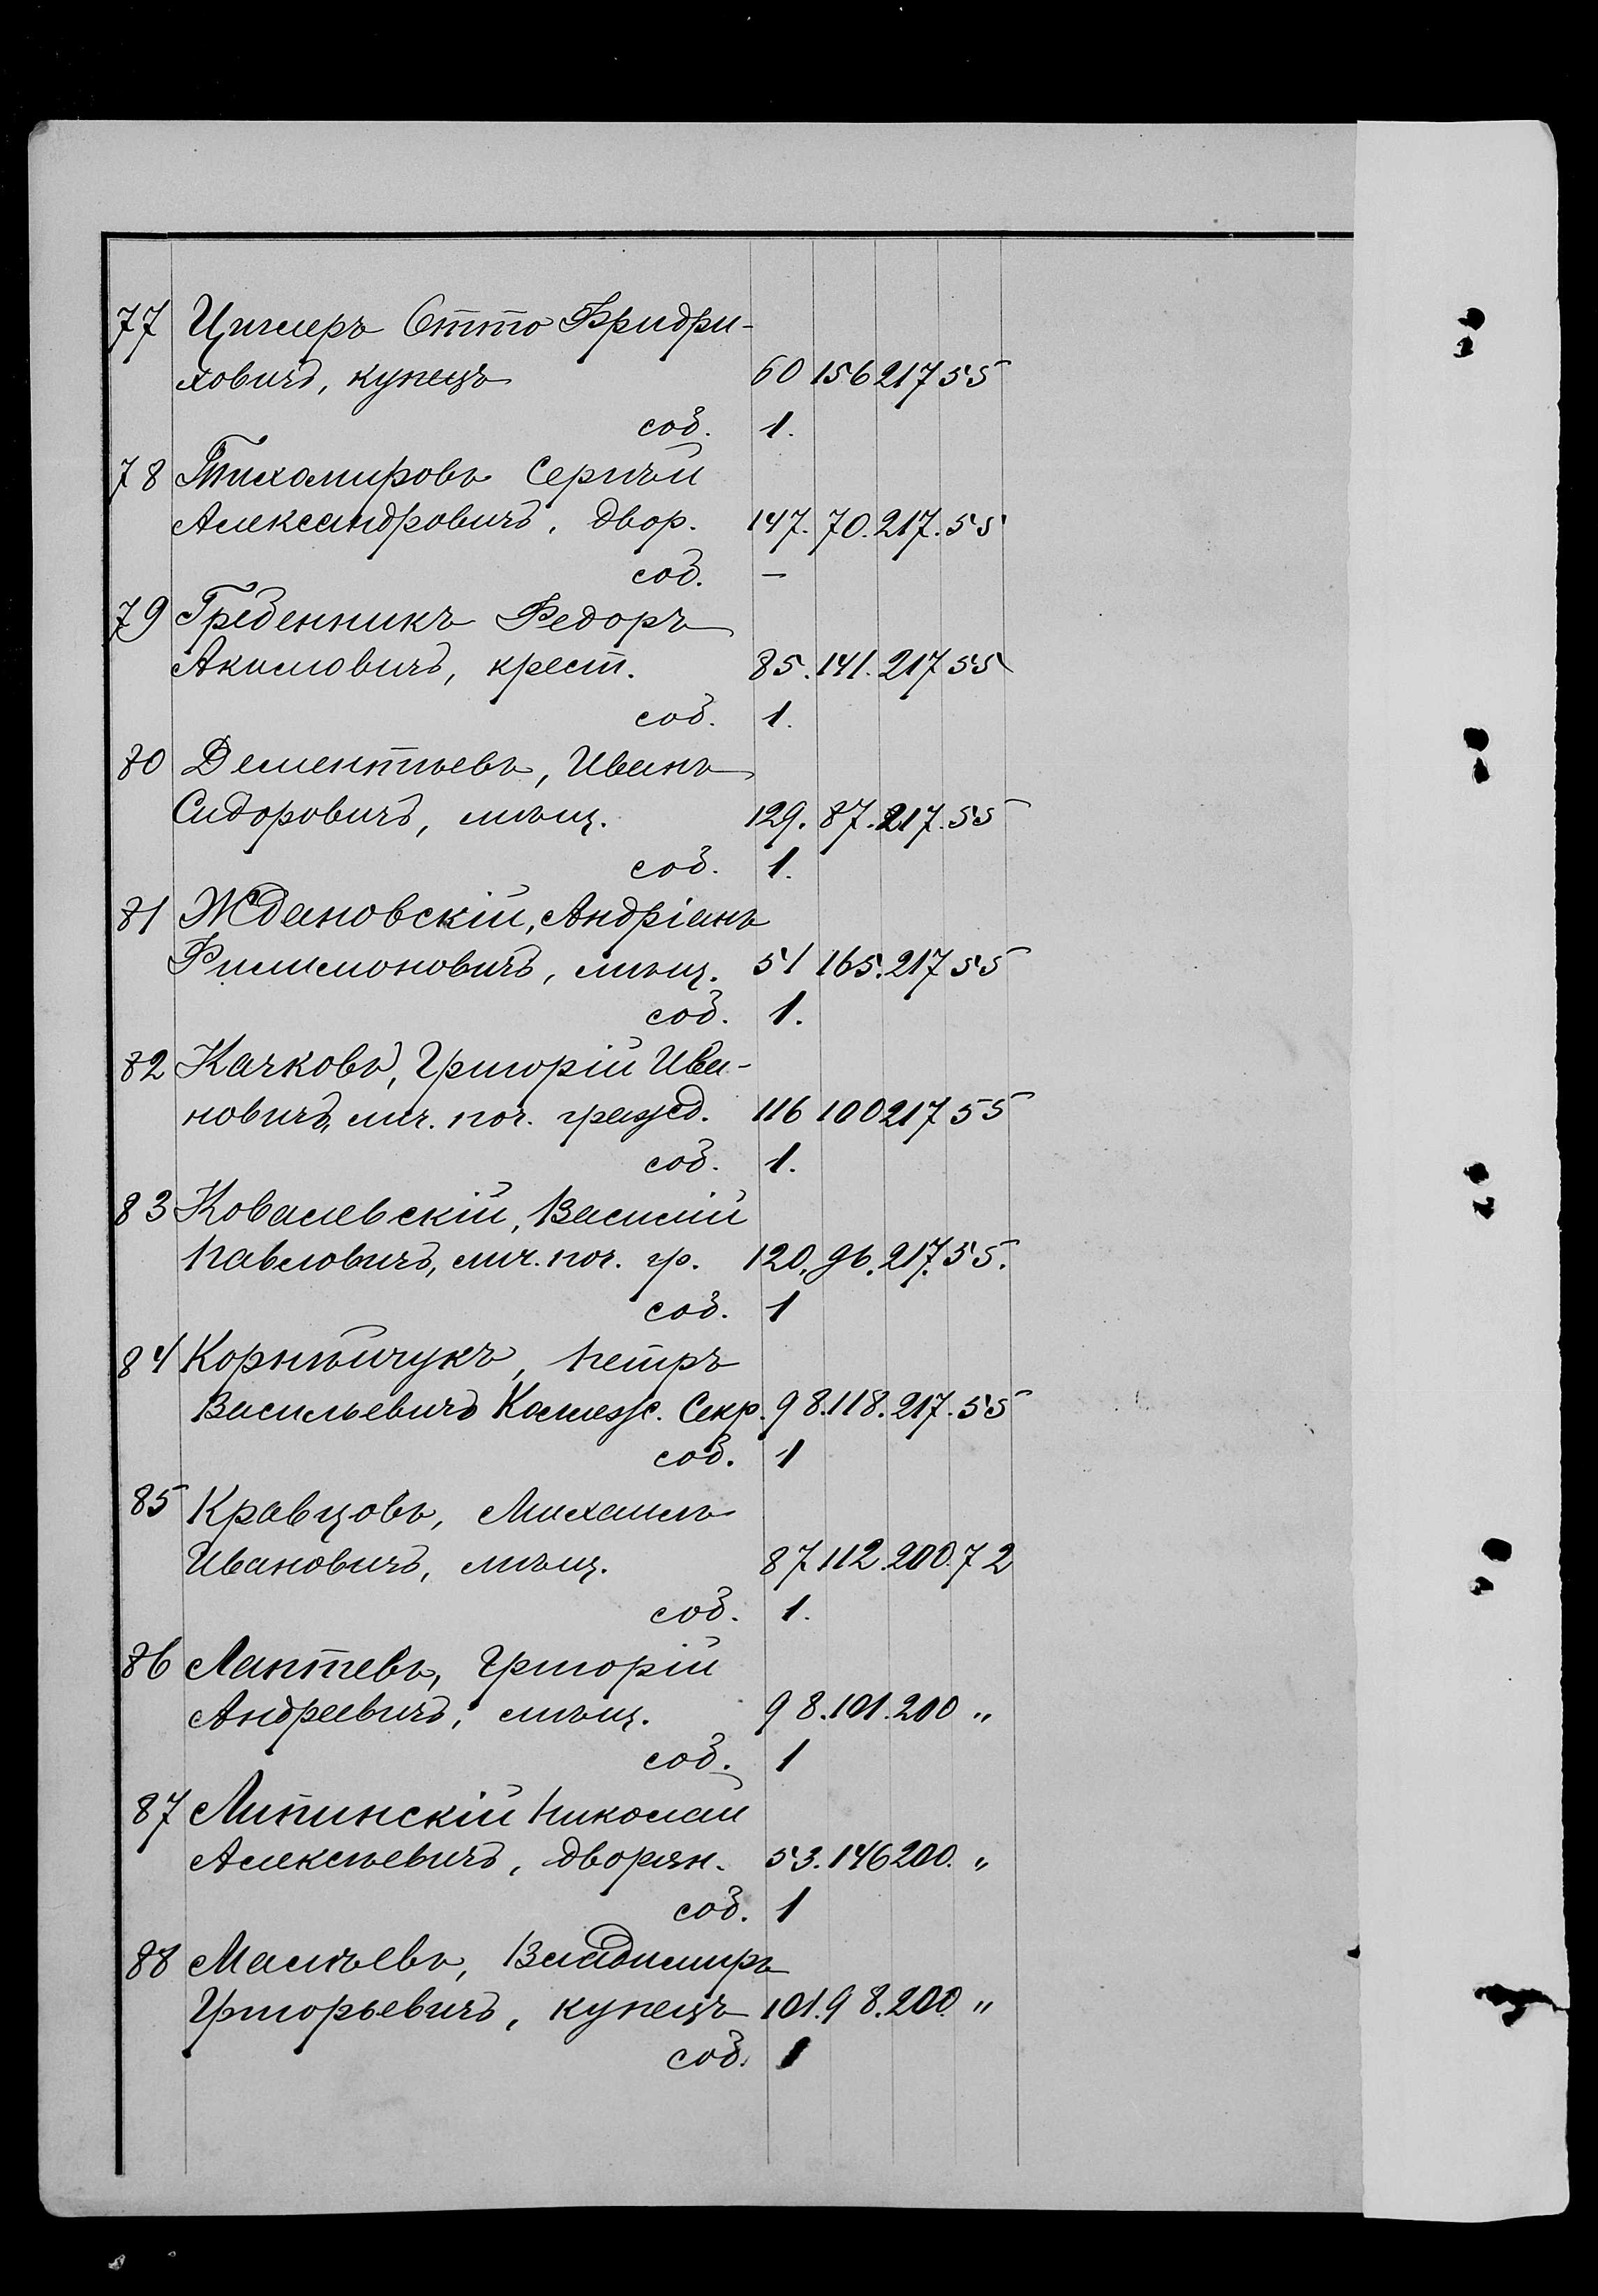 77 Циглеръ Отто Фридри-
ховичъ, купецъ 60 156 217 55
соб. 1.
78 Тихомировъ Сергѣй
Александровичъ, двор. 147. 70. 217. 55
соб. —
79 Гребенникъ Федоръ
Акимовичъ, крест. 85. 141. 217 55
соб. 1.
80 Дементьевъ, Иванъ
Сидоровичъ, мѣщ. 129. 87. 217. 55
соб. 1.
81 Ждановскій, Андріанъ
Филимоновичъ, мѣщ. 51 165. 217 55
соб. 1.
82 Качковъ, Григорій Ива-
новичъ, лич. поч. гражд. 116 100 217 55
соб. 1.
83 Ковалевскій, Василій
Павловичъ, лич. поч. гр. 120. 96. 217. 55.
соб. 1
84 Корнѣйчукъ, Петръ
Васильевичъ Коллеж. Секр. 98. 118. 217. 55
соб. 1
85 Кравцовъ, Михаилъ
Ивановичъ, мѣщ. 87. 112. 200. 72
соб. 1.
86 Лаптевъ, Григорій
Андреевичъ, мѣщ. 98. 101. 200 „
соб. 1
87 Липинскій Николай
Алексѣевичъ, дворян. 53. 146 200. „
соб. 1
88 Малѣевъ, Владимиръ
Григорьевичъ, купецъ 101. 98. 200. „
соб. 1